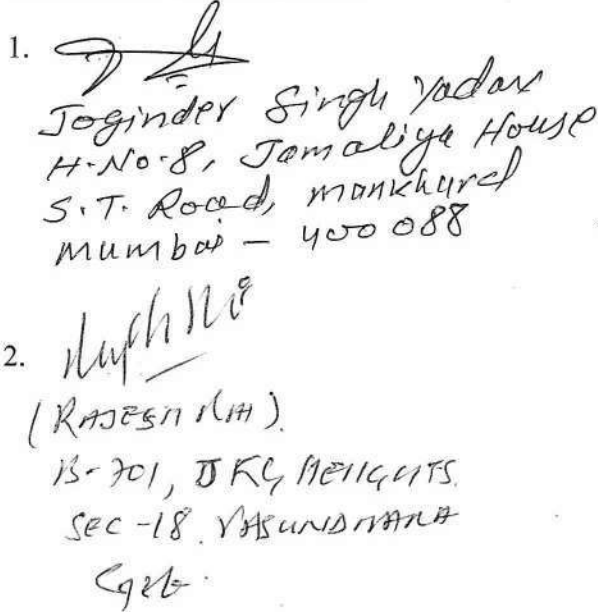 1.
Joginder Singh Yadav
H.No.8, Jamaliya House
S.T. Road, mankhurd
mumbai - 400 088
2.
(RAJESH RAI)
B-701, JKG HEIGHTS.
SEC-18. VASUNDHARA